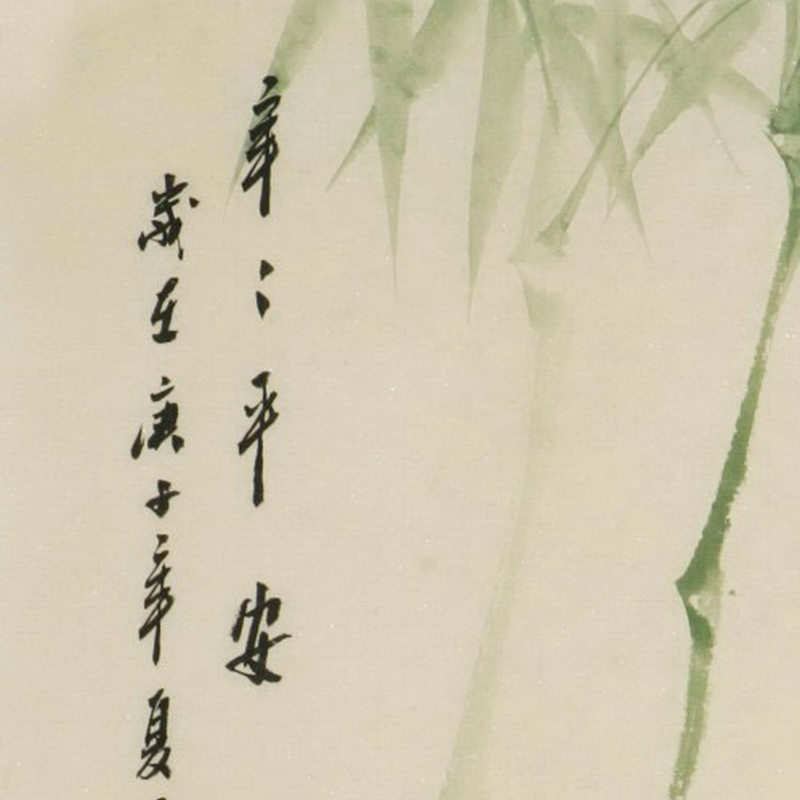 年〻平安
歲在庚子年夏